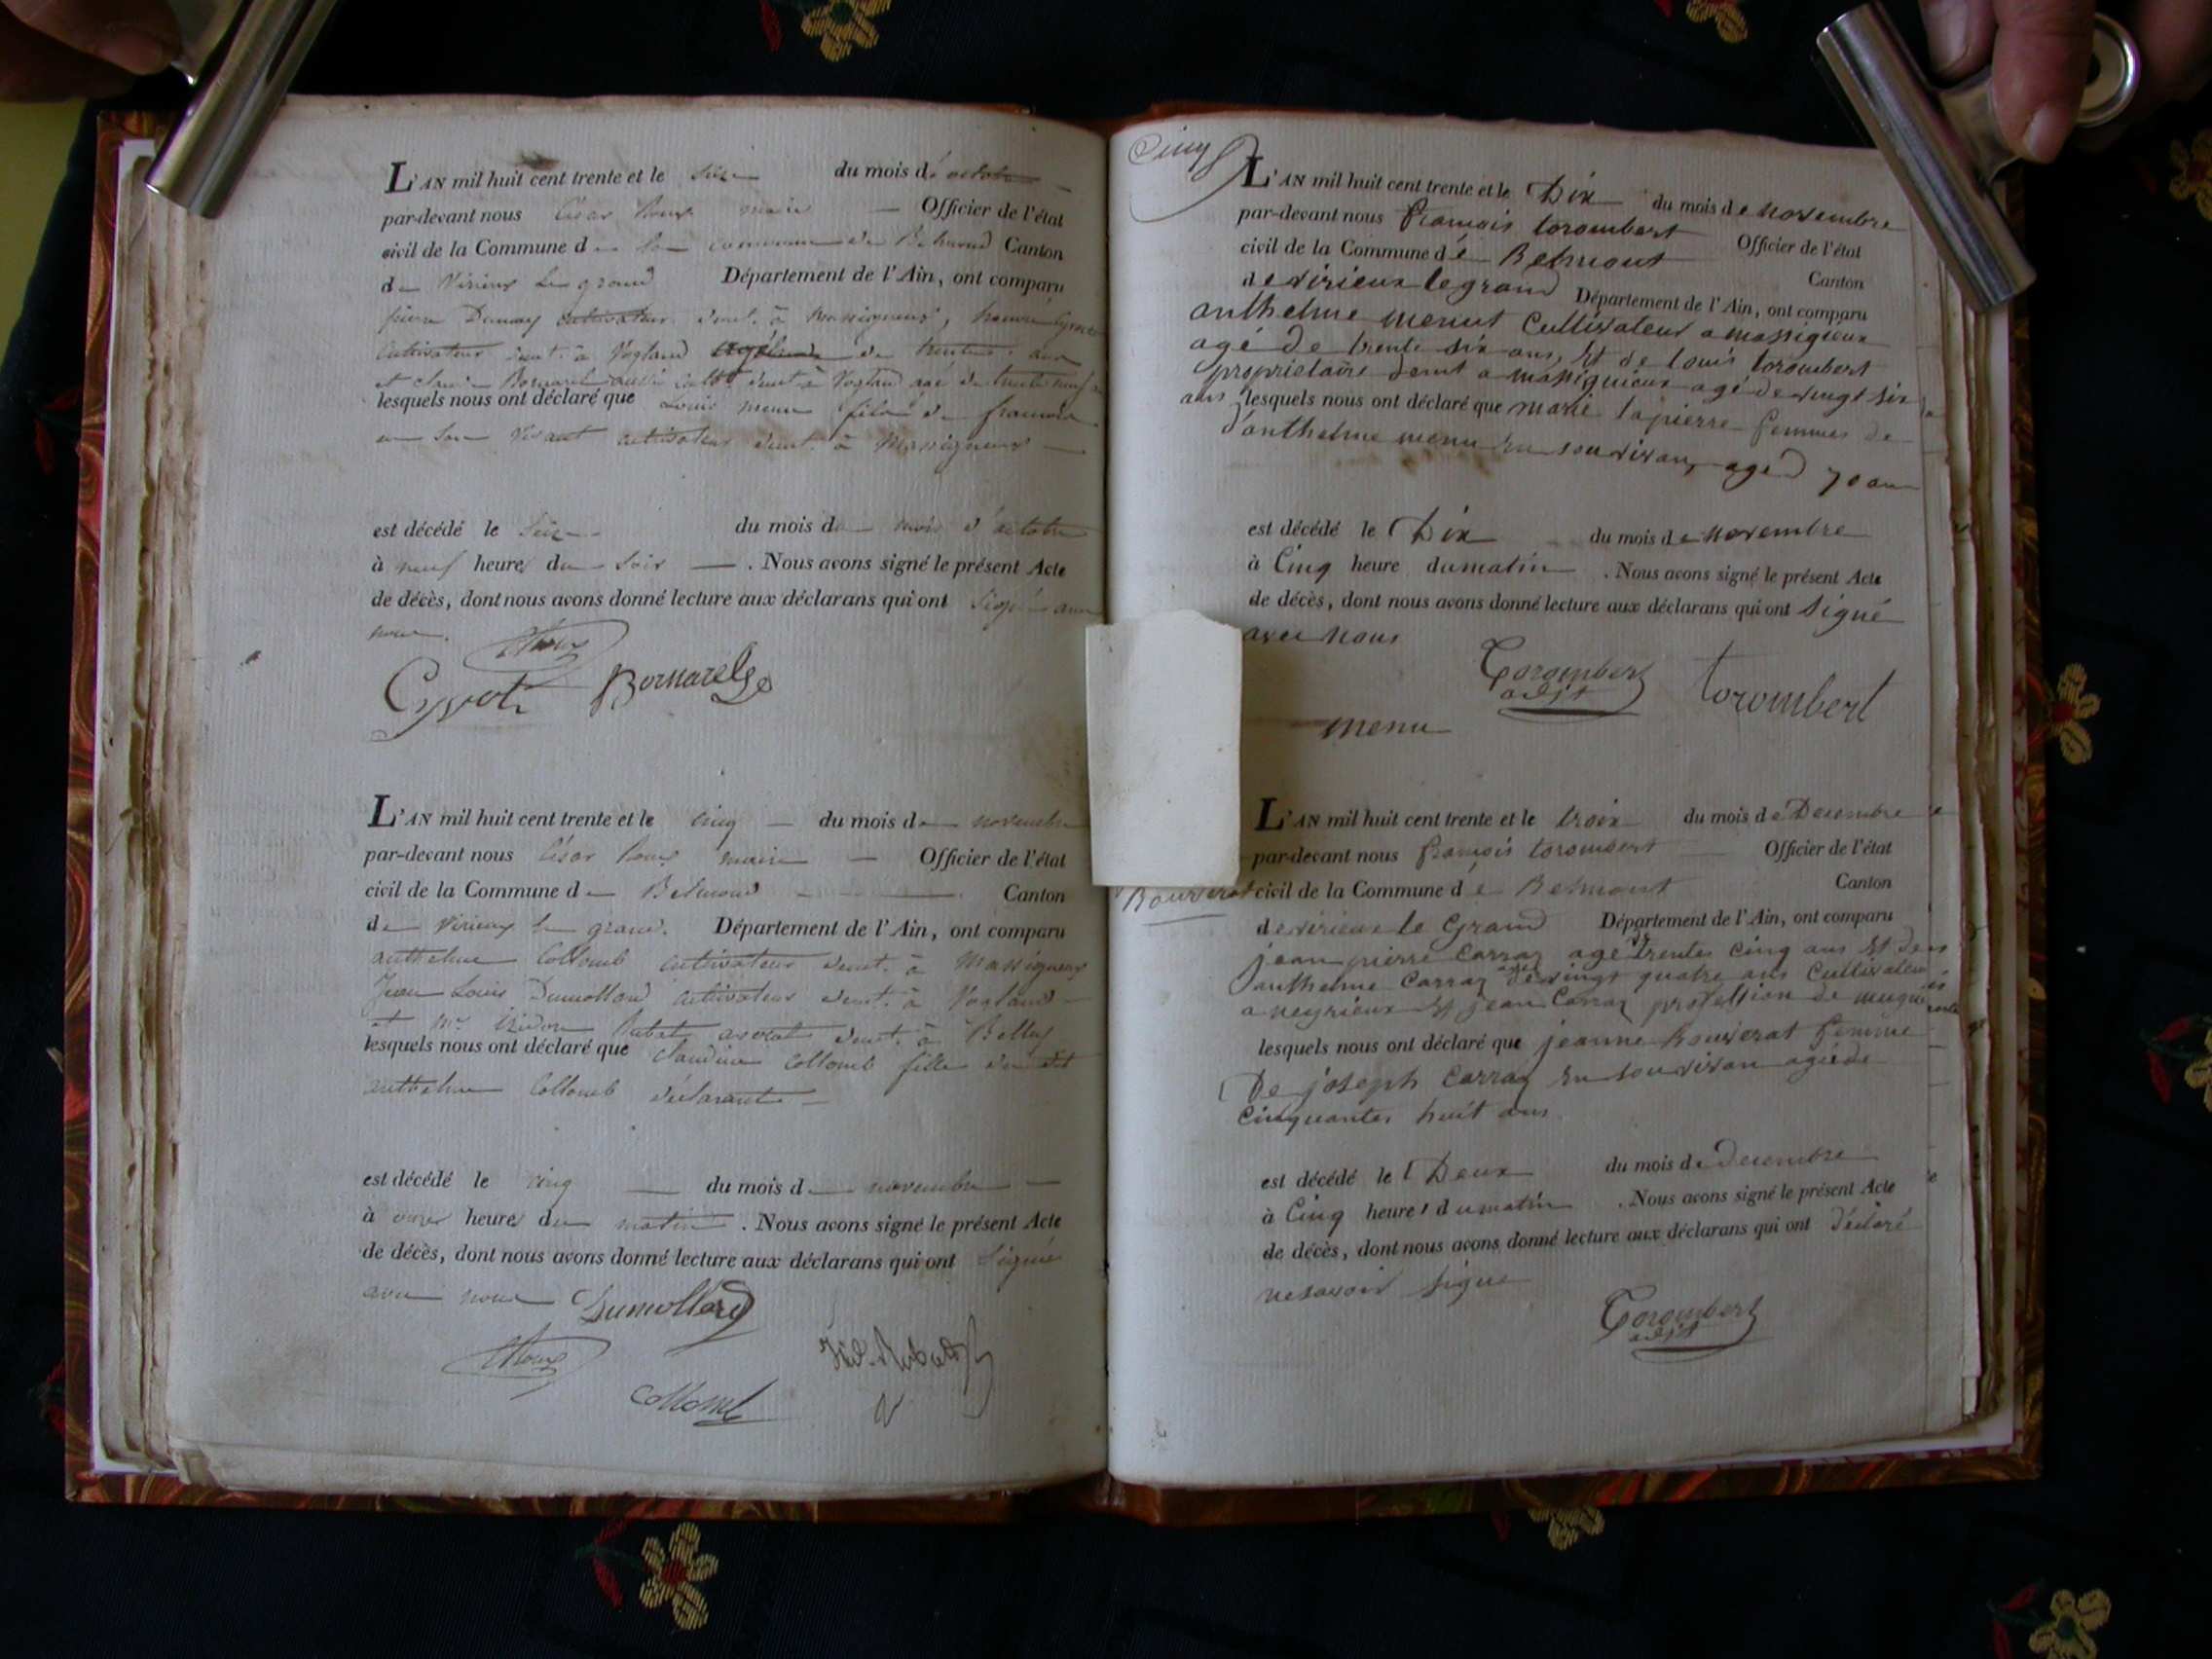 L'AN mil huit cent trente et le seize du mois d'octobre
par-devant nous César Roux maire Officier de l'état
civil de la Commune de la commune de Belmond Canton
de Virieux le grand Département de l'Ain, ont comparu
pierre cultivateur demt. à Massigneux,
cultivateur demt. à Vogland de trente ans
et Bornarel demt à Vogland agé de trente neuf
lesquels nous ont déclaré que Louis menu fils de francois
en son vivant cultivateur demt. à Massigneux
est décédé le seize du mois de mois d'octobre
à neuf heures du soir . Nous avons signé le présent Acte
de décès, dont nous avons donné lecture aux déclarans qui ont signé avec
nous.
CRoux
Cyvoct Bornarel
L'AN mil huit cent trente et le cinq du mois de novembre
par-devant nous César Roux maire Officier de l'état
civil de la Commune de Belmond Canton
de Virieux le grand. Département de l'Ain, ont comparu
anthelme Collomb cultivateur demt. à Massigneux
Jean Louis Dumollard cultivateur demt. à Vogland
et Mr. Isidore Rubat avocat demt. à Belley
lesquels nous ont déclaré que Claudine Collomb fille du dit
anthelme Collomb déclarant
est décédé le cinq du mois de novembre
à onze heures du matin . Nous avons signé le présent Acte
de décès, dont nous avons donné lecture aux déclarans qui ont signé
avec nous Dumollard
CRoux
Collomb
L'AN mil huit cent trente et le Dix du mois de novembre
par-devant nous francois torombert Officier de l'état
civil de la Commune dé Belmont Canton
de virieux le grand Département de l'Ain, ont comparu
anthelme menut Cultivateur a massigieux
agé de trente six ans, Et de louis torombert
propriétaire demt a massiguieux agé de vingt six
ans lesquels nous ont déclaré que marie lapierre femmes de
d'anthelme menu En son vivan, aged 70 an
est décédé le Dix du mois de novembre
à Cinq heure du matin . Nous avons signé le présent Acte
de décès, dont nous avons donné lecture aux déclarans qui ont signé
avec nous
Torombert
adjt
torombert
menu
L'AN mil huit cent trente et le trois du mois de Decembre
par-devant nous francois torombert Officier de l'état
Bouverat civil de la Commune dé Belmont Canton
de virieux le Grand Département de l'Ain, ont comparu
jean pierre Carraz agé de trentes Cinq ans Et de
anthelme Carraz agé de vingt quatre ans Cultivateur
a neyrieux Et jean Carraz profession de
lesquels nous ont déclaré que jeanne Bouverat femme
De joseph Carraz En son vivan agée de
Cinquantes huit ans
est décédé le Deux du mois de Decembre
à Cinq heures du matin . Nous avons signé le présent Acte
de décès, dont nous avons donné lecture aux déclarans qui ont déclaré
ne savoir signe
Torombert
adjt